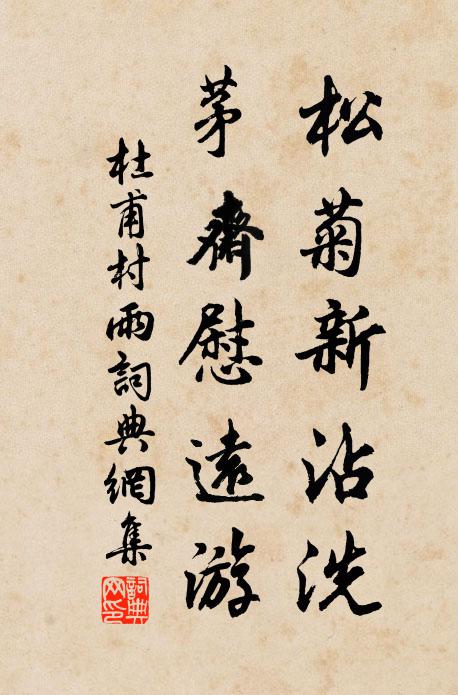 松菊新沾洗
茅齋慰遠游
杜甫村雨詞典網集
詞典網印